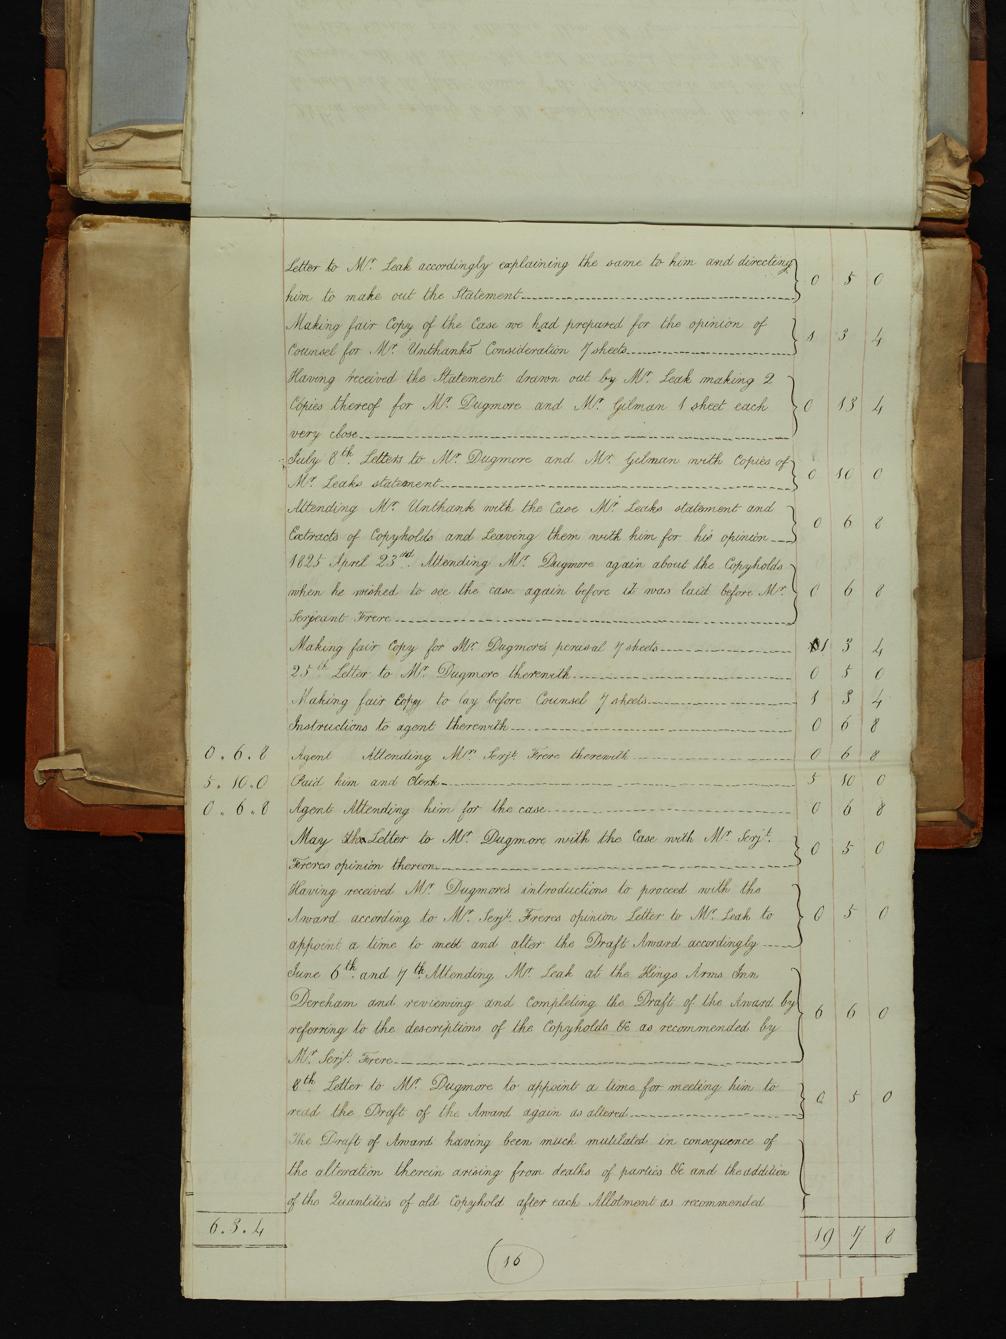 Letter to Mr. Leak accordingly explaining the same to him and directing
him to make out the Statement 0 5 0
Making fair Copy of the Case we had prepared for the opinion of
Counsel for Mr. Unthanks Consideration 7 sheets 1 3 4
Having received the Statement drawn out by Mr. Leak making 2
Copies thereof for Mr. Dugmore and Mr. Gilman 1 sheet each 0 13 4
very close
July 8th. Letters to Mr. Dugmore and Mr. Gilman with Copies of
Mr. Leaks statement 0 10 0
Attending Mr. Unthank with the Case Mr. Leaks statement and
Extracts of Copyholds and Leaving them with him for his opinion 0 6 8
1825 April 23rd. Attending Mr. Dugmore again about the Copyholds
when he wished to see the case again before it was laid before Mr. 0 6 8
Serjeant Frere
Making fair Copy for Mr. Dugmore's perusal 7 sheets 1 3 4
25th Letter to Mr. Dugmore therewith 0 5 0
Making fair Copy to lay before Counsel 7 sheets 1 3 4
Instructions to agent therewith 0 6 8
0.6.8 Agent Attending Mr. Serjt. Frere therewith 0 6 8
5.10.0 Paid him and Clerk 5 10 0
0.6.8 Agent Attending him for the case 0 6 8
May Letter to Mr. Dugmore with the Case with Mr. Serjt.
Freres opinion thereon 0 5 0
Having received Mr. Dugmore's introductions to proceed with the
Award according to Mr. Serjt. Freres opinion Letter to Mr. Leak to 0 5 0
appoint a time to meet and alter the Draft Award accordingly
June 6th and 7th Attending Mr. Leak at the Kings Arms Inn
Dereham and reviewing and completing the Draft of the Award by 6 6 0
referring to the descriptions of the Copyholds &c as recommended by
Mr. Serjt. Frere
8th Letter to Mr. Dugmore to appoint a time for meeting him to
read the Draft of the Award again as altered 0 5 0
The Draft of Award having been much mutilated in consequence of
the alteration therein arising from deaths of parties &c and the addition
of the Quantities of old Copyhold after each Allotment as recommended
6.3.4 19 7 8
16